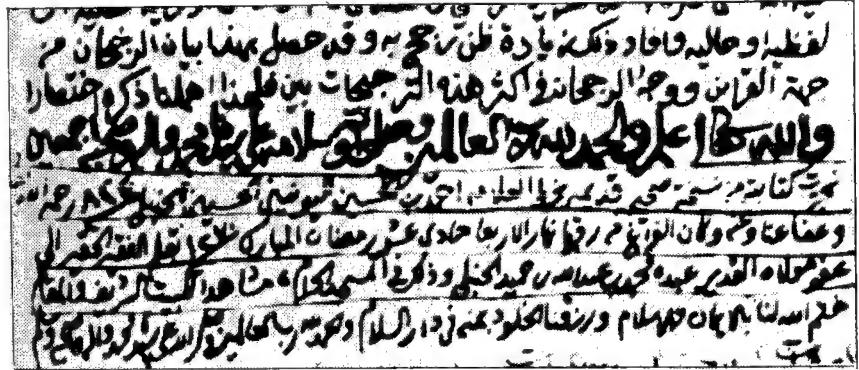 لفظية او حالية وافاد ذلك زيادة ظن رجح به وقد حصل بهذا بيان الرجحان من
جهة القرائن ووجه الرجحان في اكثر هذه الترجيحات بين فلهذا اهملنا ذكره اختصارا
والله اعلم والحمد لله رب العالمين وصلى الله وسلامه على محمد وآله وصحبه اجمعين
تمت كتابة من نسخة صحيحة قديمة بخط العلامه احمد بن الحسيني الحنبلي رحمه الله
وعفا عنا وعنه وكان الفراغ من رقمها نهار الاربعا حادى عشر رمضان المبارك بقلم الفقير الحقير الى
عفو مولاه القدير عبده محمد بن عبدالله بن حميد الحنبلي وذلك في المسجد الحرام مشاهدا للبيت الشريف والمقام
ختم الله لنا بالايمان والاسلام ورزقنا الخلود بمنه في دار السلام والحمد لله رب العالمين
تمت